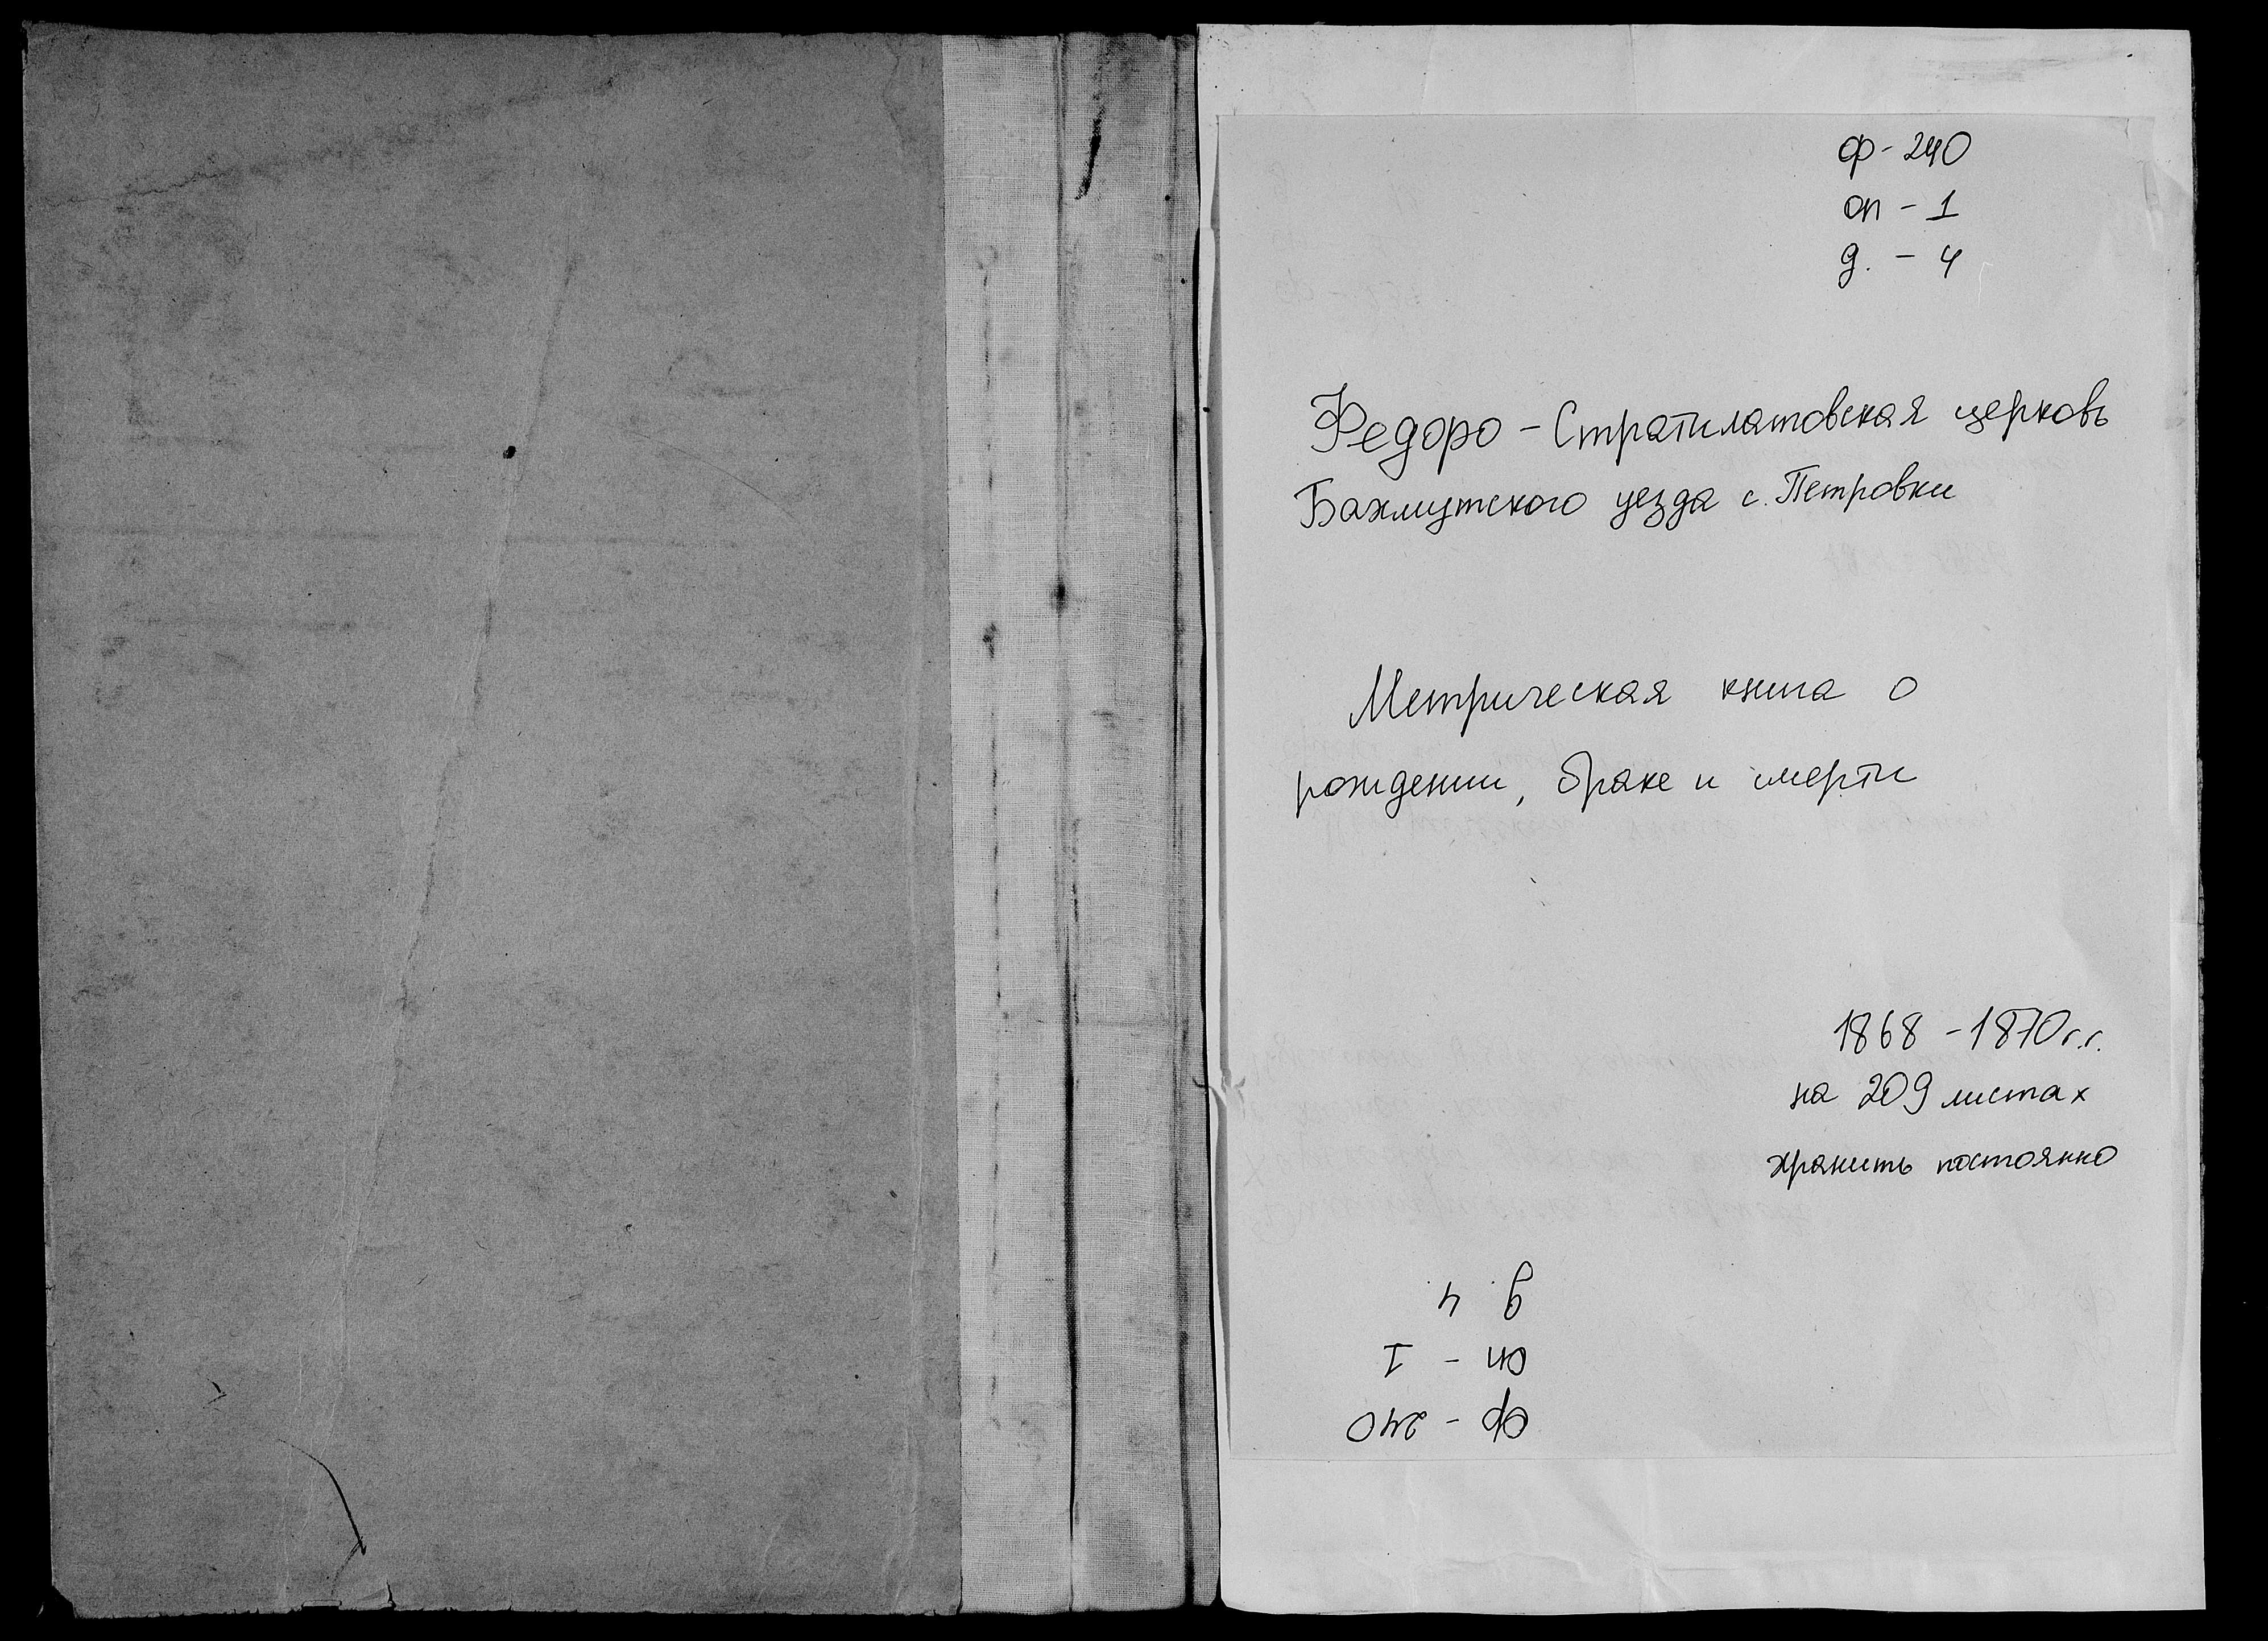 ф - 240
оп - 1
д. - 4
Федоро - Стратилатовская церковь
Бахмутского уезда с. Петровки
Метрическая книга о
рождении, браке и смерти
1868 - 1870 г.г.
на 209 листах
хранить постоянно
ф - 240
оп - I
д. 4